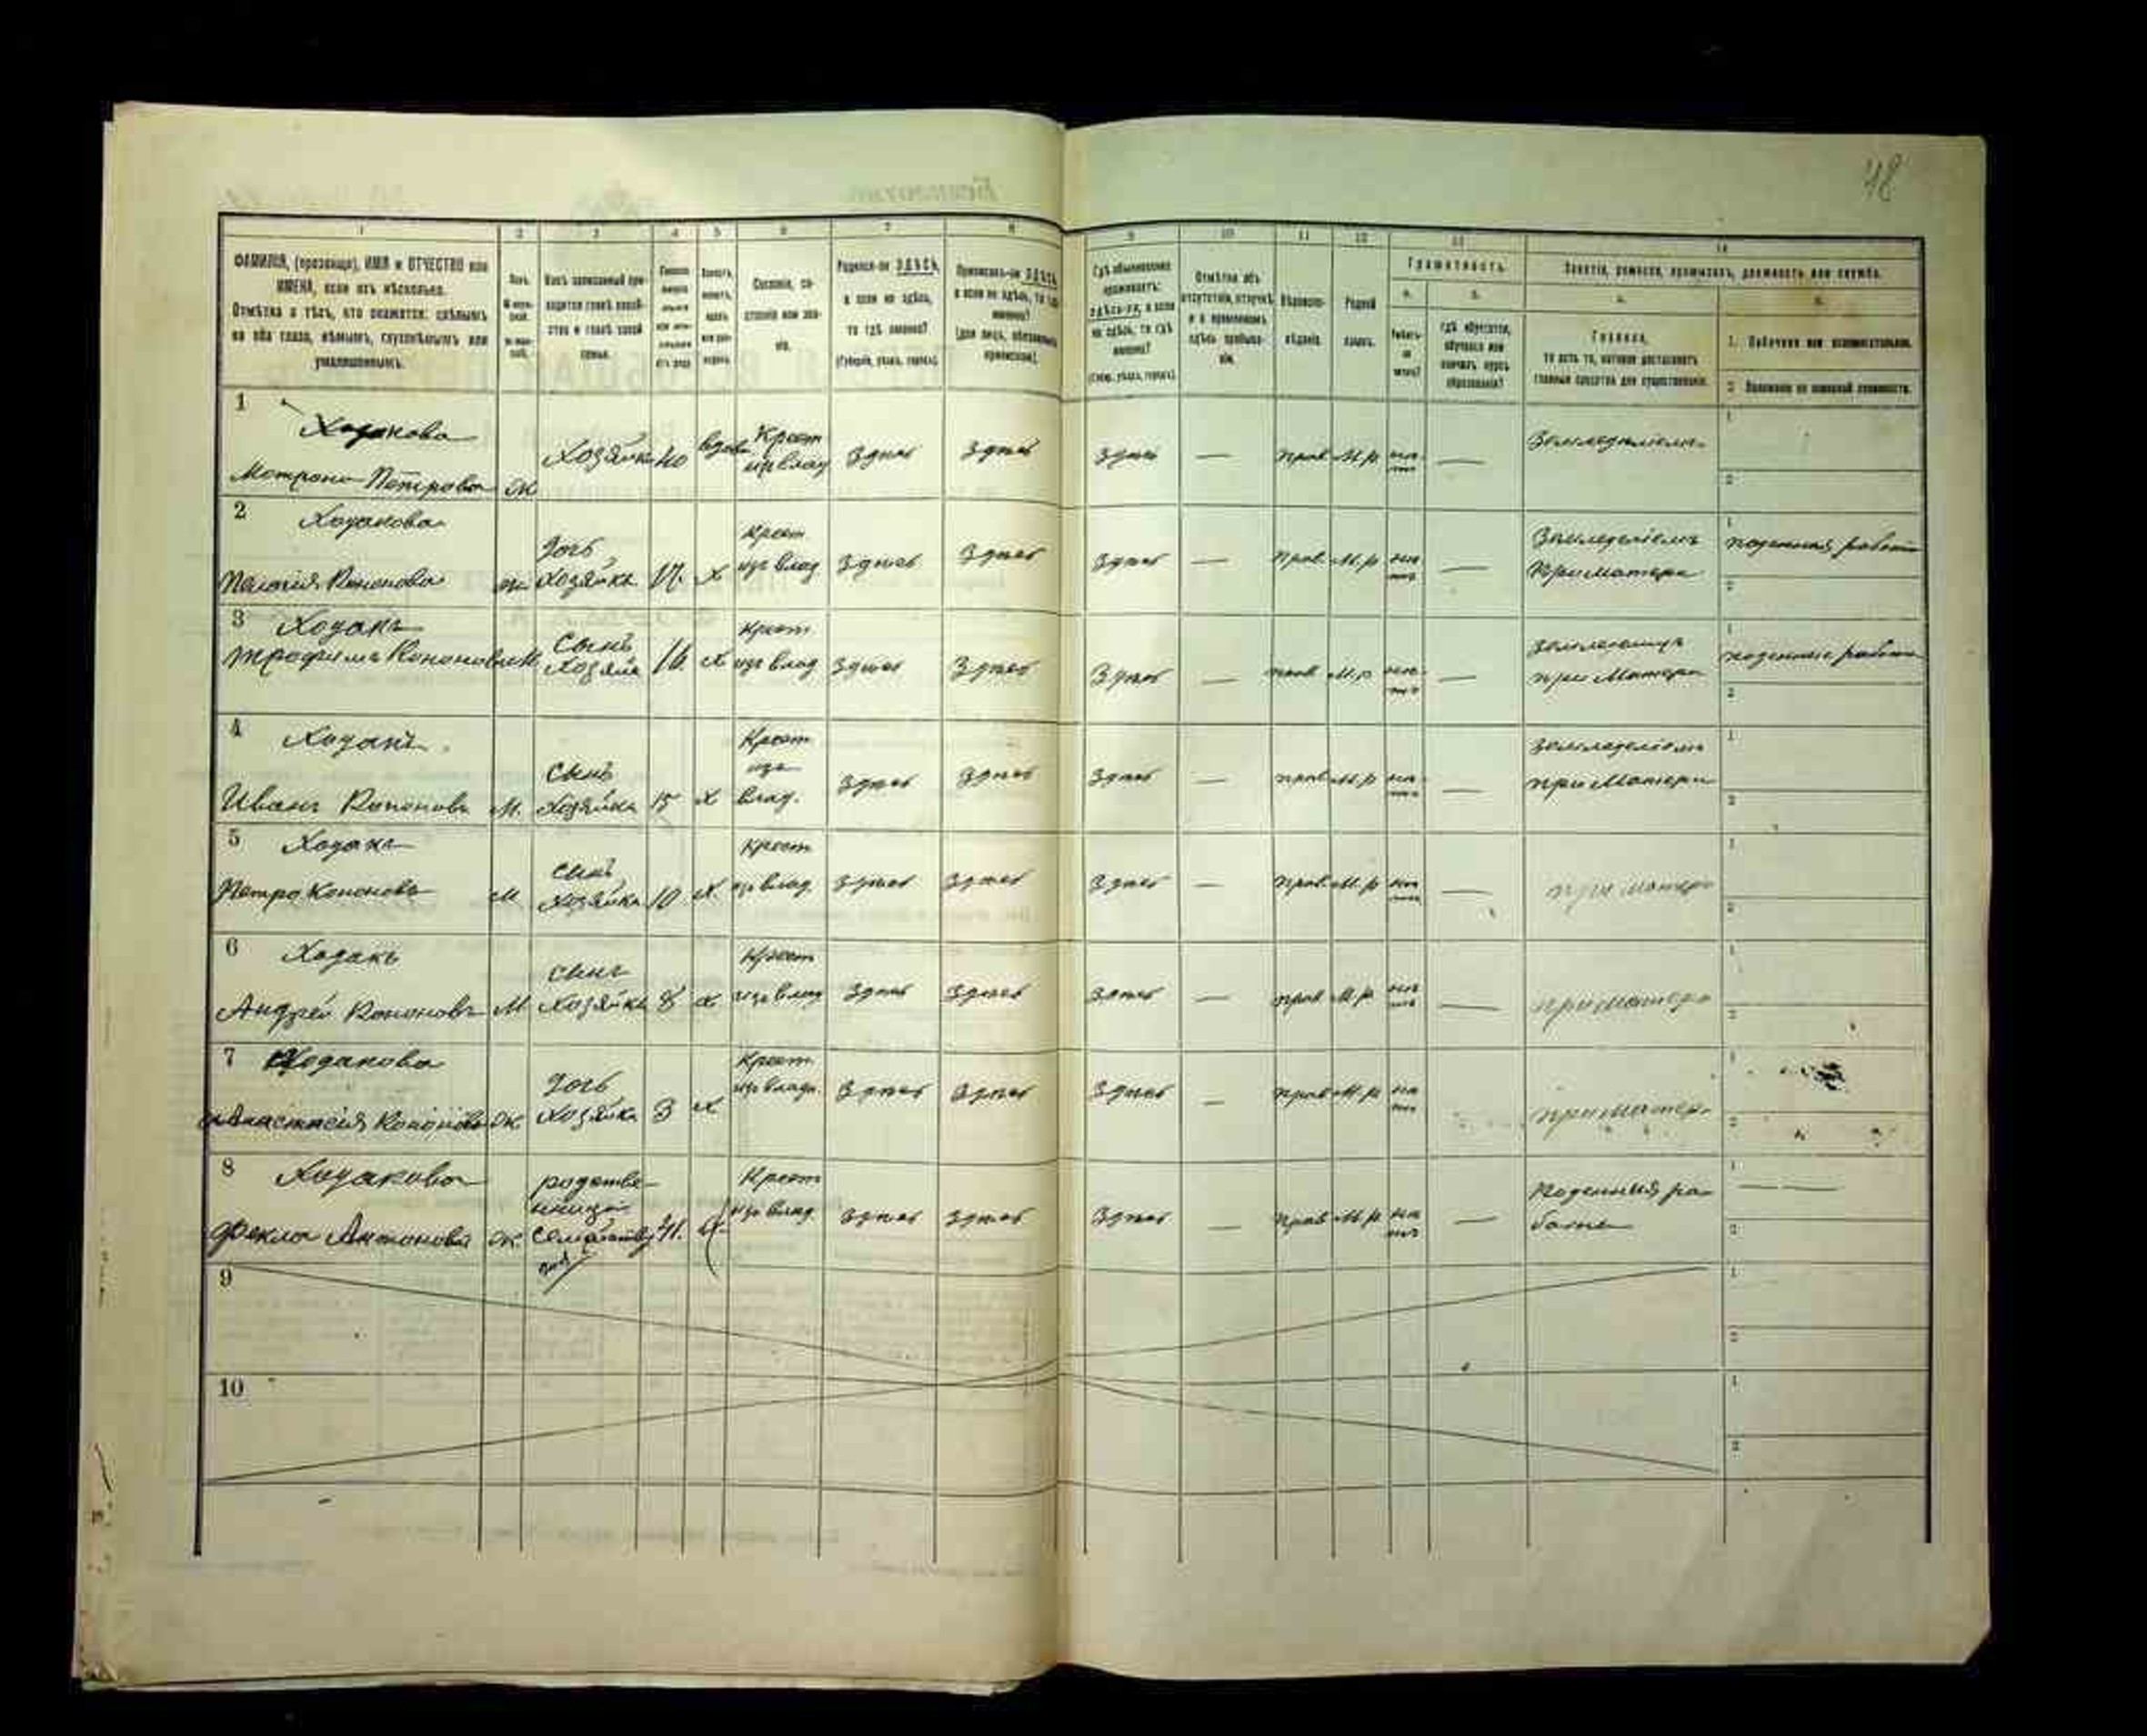 48
1 2 3 4 5 6 7 8 9 10 11 12 13 14
ФАМИЛІЯ, (прозвище), ИМЯ и ОТЧЕСТВО или
ИМЕНА, если ихъ нѣсколько.
Отмѣтка о тѣхъ, кто окажется: слѣпымъ
на оба глаза, нѣмымъ, глухонѣмымъ или
умалишеннымъ.
Полъ.
Какъ записанный при-
ходится главѣ хозяй-
ства и главѣ своей
семьи.
Сословіе, со-
стояніе или зва-
ніе.
Родился-ли ЗДѢСЬ,
а если не здѣсь,
то гдѣ именно?
(Губернія, уѣздъ, городъ).
Приписанъ-ли ЗДѢСЬ,
а если не здѣсь, то гдѣ
именно?
Гдѣ обыкновенно
проживаетъ:
здѣсь-ли, а если
не здѣсь, то гдѣ
именно?
(Губер., уѣздъ, городъ).
Отмѣтка объ
отсутствіи, отлучкѣ
и о временномъ
здѣсь пребыва-
ніи.
Вѣроиспо-
вѣданіе.
Родной
языкъ.
Грамотность.
а. б.
Умѣетъ-
ли
читать?
гдѣ обучается,
обучался или
кончилъ курсъ
образованія?
Занятіе, ремесло, промыселъ, должность или служба.
а. б.
Главное,
то есть то, которое доставляетъ
главныя средства для существованія.
1. Побочное или вспомогательное.
2. Положеніе по воинской повинности.
1 Ходакова
Мотрона Петрова ж Хозяйка 40 вдова Крест изъ влад здѣсь здѣсь здѣсь — прав М.р нѣтъ — Земледѣліемъ 1 2
2 Ходакова
Пелагія Кононова ж дочь хозяйка 17. х крест изъ влад здѣсь здѣсь здѣсь — прав М.р нѣтъ — Земледѣліемъ при матери 1 поденная работа 2
3 Ходакъ
Трофимъ Кононовъ М сынъ хозяйка 16 х крест изъ влад здѣсь здѣсь здѣсь — прав М.р нѣтъ — при матери 1 2
4 Ходакъ
Иванъ Кононовъ М. сынъ хозяйка 15 х Крест изъ влад. здѣсь здѣсь здѣсь — прав М.р нѣтъ — земледѣліемъ при матери 1 2
5 Ходакъ
Петро Кононовъ М сынъ хозяйка 10 х. крест изъ влад. здѣсь здѣсь здѣсь — прав. М.р нѣтъ — при матери 1 2
6 Ходакъ
Андрей Кононовъ М сынъ хозяйка 8 х Крест изъ влад здѣсь здѣсь здѣсь — прав М.р нѣтъ — при матери 1 2
7 Ходакова
Анастасія Кононова ж. дочь хозяйка 3 х Крест изъ влад. здѣсь здѣсь здѣсь — прав М.р нѣтъ при матери 1 2
8 Ходакова
Фекла Антонова ж. родстве-
нница
41. Крест изъ влад. здѣсь здѣсь здѣсь — прав М.р нѣтъ — Поденныя ра-
боты 1 — 2
9 1 2
10 1 2